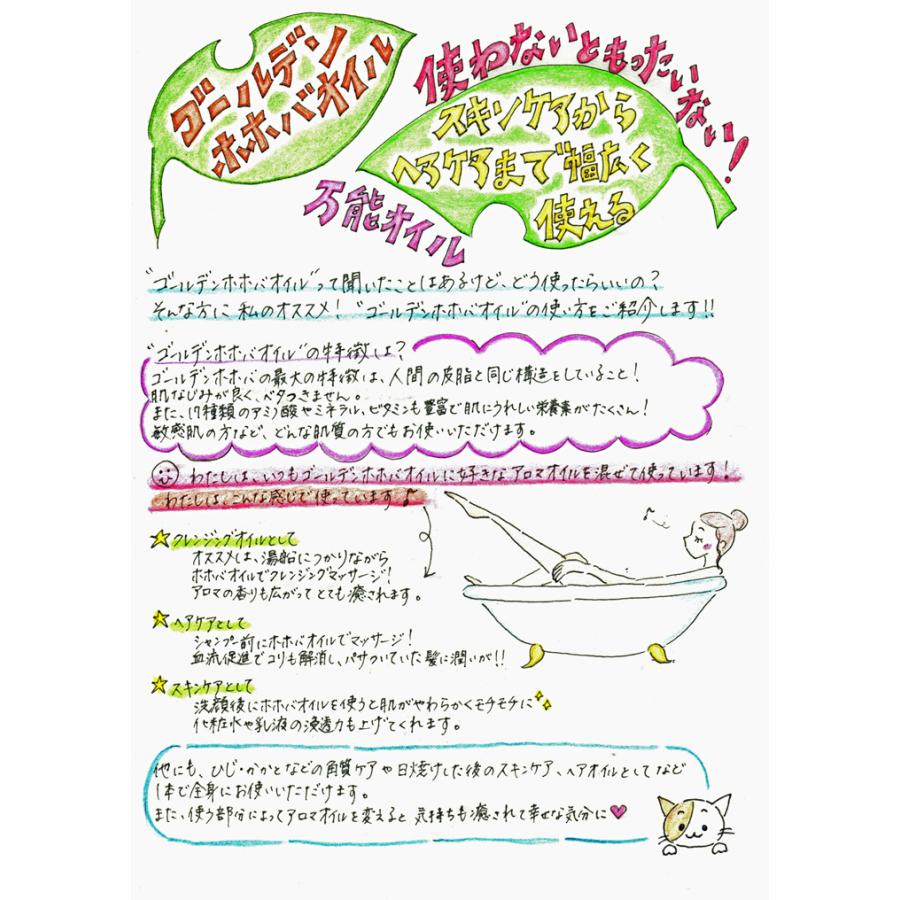 ゴールデン
ホホバオイル
使わないともったいない!
スキンケアから
ヘアケアまで幅広く
使える
万能オイル
"ゴールデンホホバオイル"って聞いたことはあるけど、どう使ったらいいの?
そんな方に私のオススメ! "ゴールデンホホバオイル"の使い方をご紹介します!!
"ゴールデンホホバオイル"の特徴は?
ゴールデンホホバの最大の特徴は、人間の皮脂と同じ構造をしていること!
肌なじみが良く、ベタつきません。
また、17種類のアミノ酸やミネラル、ビタミンも豊富で肌にうれしい栄養素がたくさん!
敏感肌の方など、どんな肌質の方でもお使いいただけます。
わたしは、いつもゴールデンホホバオイルに好きなアロマオイルを混ぜて使っています!
わたしは、こんな感じで使っています♪
★クレンジングオイルとして
オススメは、湯船につかりながら
ホホバオイルでクレンジングマッサージ!
アロマの香りも広がってとても癒されます。
★ヘアケアとして
シャンプー前にホホバオイルでマッサージ!
血流促進でコリも解消し、パサついていた髪に潤いが!!
★スキンケアとして
洗顔後にホホバオイルを使うと肌がやわらかくモチモチに
化粧水や乳液の浸透力も上げてくれます。
他にも、ひじ・かかとなどの角質ケアや日焼けした後のスキンケア、ヘアオイルとしてなど
1本で全身にお使いいただけます。
また、使う部分によってアロマオイルを変えると気持ちも癒されて幸せな気分に♥